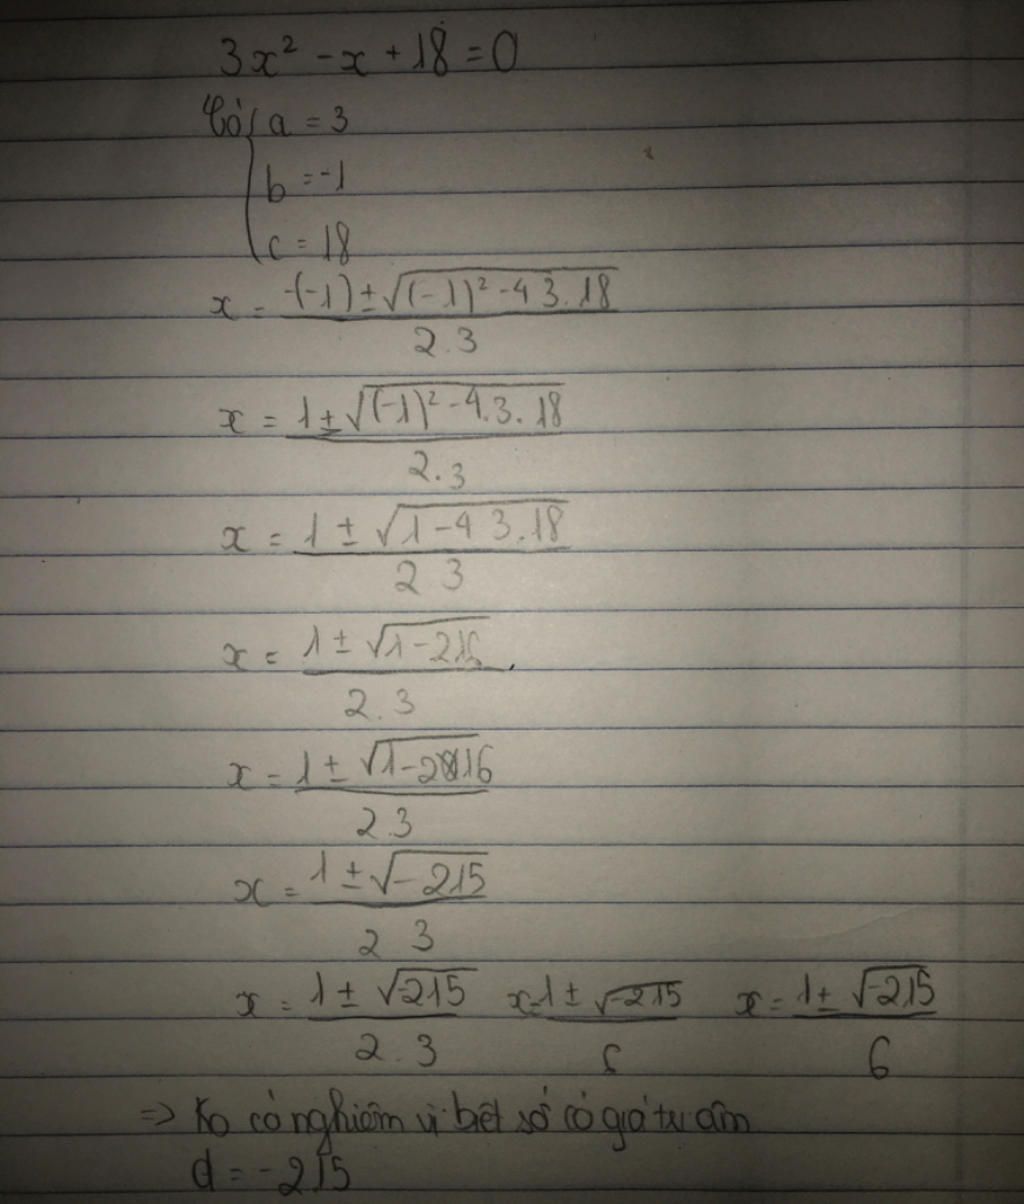 3x² - x + 18 = 0
Có { a = 3
b = -1
c = 18
x = (-(-1) ± √((-1)² - 4 3.18)) / (2.3)
x = (1 ± √((-1)² - 4.3.18)) / (2.3)
x = (1 ± √(1 - 4 3.18)) / (2 3)
x = (1 ± √(1 - 216)) / (2.3)
x = (1 ± √(1 - 216)) / (2.3)
x = (1 ± √(-215)) / (2 3)
x = (1 ± √(-215)) / (2.3) x = (1 ± √(-215)) / 6 x = (1 ± √(-215)) / 6
=> Ko có nghiệm vì biệt số có giá trị âm
d = -215